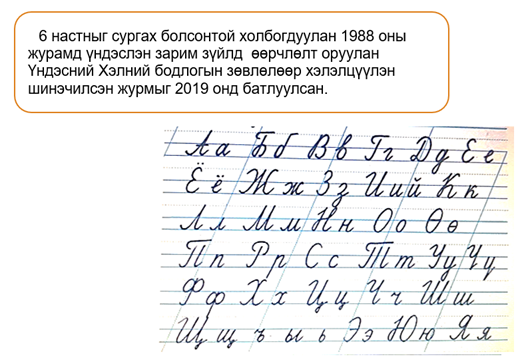 6 настныг сургах болсонтой холбогдуулан 1988 оны
журамд үндэслэн зарим зүйлд өөрчлөлт оруулан
Үндэсний Хэлний бодлогын зөвлөлөөр хэлэлцүүлэн
шинэчилсэн журмыг 2019 онд батлуулсан.
Аа Бб Вв Гг Дд Ее
Ёё Жж Зз Ииий Кк
Лл Мм Нн Оо Өө
Пп Рр Сс Тт Уу Үү
Фф Хх Цц Чч Шш
Щщ ъ ы ь Ээ Юю Яя